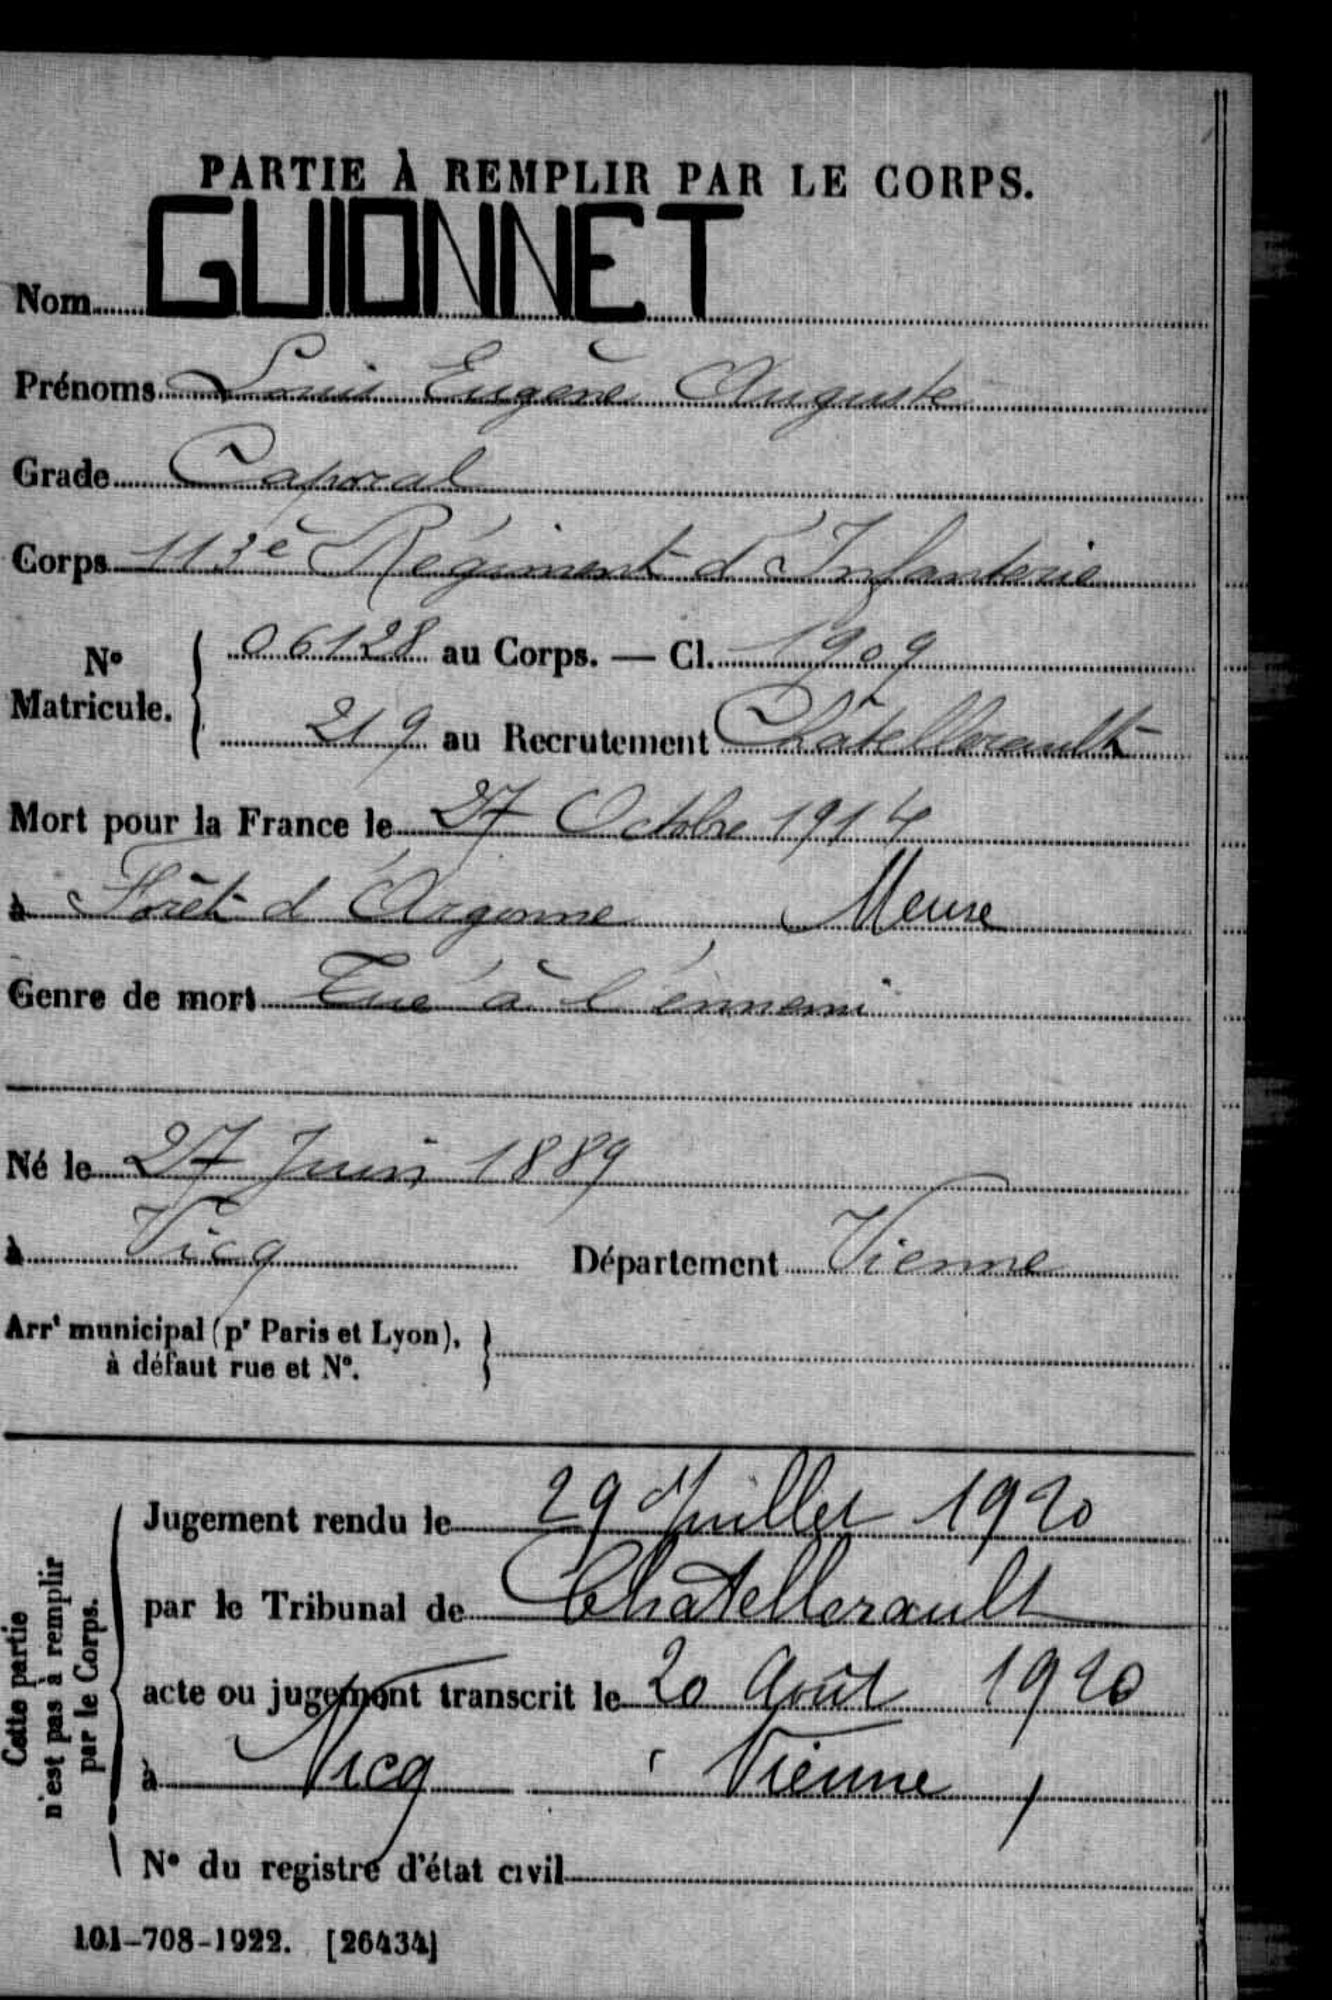 PARTIE À REMPLIR PAR LE CORPS.
Nom GUIONNET
Prénoms Louis Eugène Auguste
Grade Caporal
Corps 113e Régiment d'Infanterie
N° Matricule. 06128 au Corps. — Cl. 1909
219 au Recrutement Châtellerault
Mort pour la France le 27 Octobre 1914
à Forêt d'Argonne Meuse
Genre de mort Tué à l'ennemi
Né le 27 Juin 1889
à Vicq Département Vienne
Arrt municipal (pr Paris et Lyon),
à défaut rue et N°.
Cette partie n'est pas à remplir par le Corps.
Jugement rendu le 29 Juillet 1920
par le Tribunal de Chatellerault
acte ou jugement transcrit le 20 Août 1920
à Vicq (Vienne)
N° du registre d'état civil
101-708-1922. [26434]